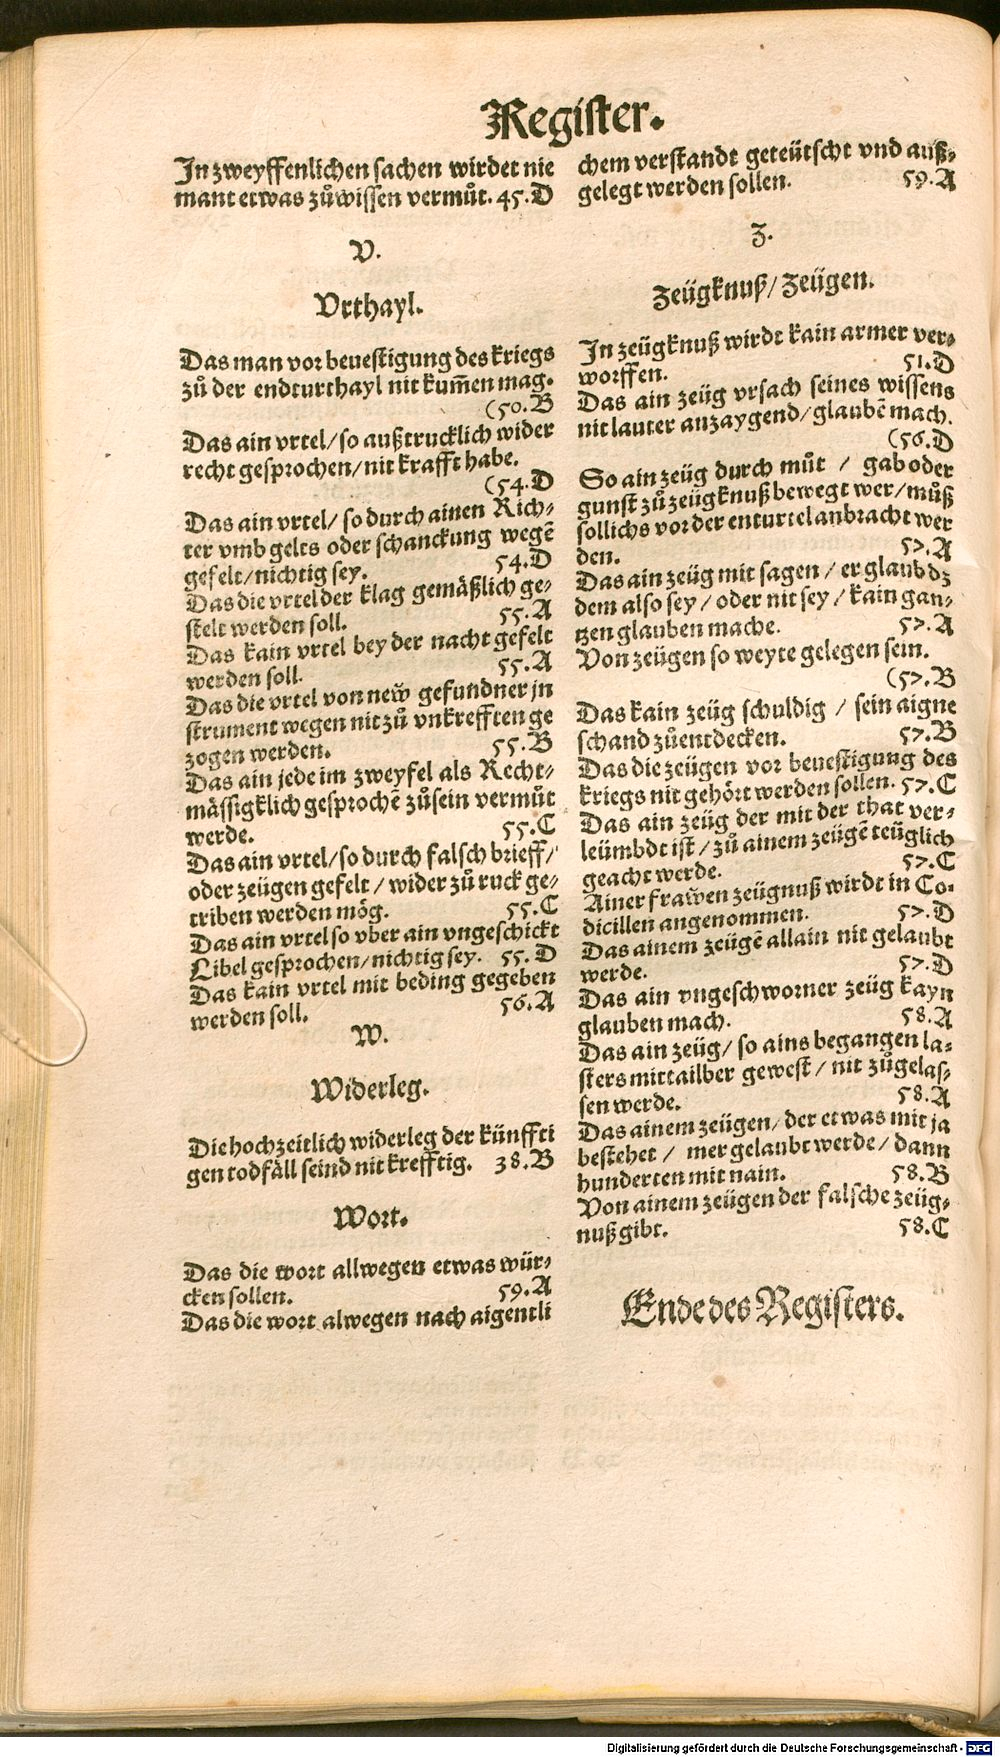 Register.
In zweyffenlichen sachen wirdet nie
mant etwas zůwissen vermůt. 45.D
V.
Vrthayl.
Das man vor beuestigung des kriegs
zů der endturthayl nit kum̃en mag.
(50.B
Das ain vrtel/so außtrucklich wider
recht gesprochen/nit krafft habe.
(54.D
Das ain vrtel/ so durch ainen Rich⸗
ter vmb gelts oder schanckung wegẽ
gefelt/nichtig sey. 54.D
Das die vrtel der klag gemäßlich ge⸗
stelt werden soll. 55.A
Das kain vrtel bey der nacht gefelt
werden soll. 55.A
Das die vrtel von new̃ gefundner jn
strument wegen nit zů vnkrefften ge
zogen werden. 55.B
Das ain jede im zweyfel als Recht⸗
mässigklich gesprochẽ zůsein vermůt
werde. 55.C
Das ain vrtel/so durch falsch brieff/
oder zeügen gefelt/ wider zů ruck ge⸗
triben werden mög. 55.C
Das ain vrtel so vber ain vngeschickt
Libel gesprochen/nichtig sey. 55.D
Das kain vrtel mit beding gegeben
werden soll. 56.A
W.
Widerleg.
Die hochzeitlich widerleg der künffti
gen todfäll seind nit krefftig. 38.B
Wort.
Das die wort allwegen etwas wür⸗
cken sollen. 59.A
Das die wort alwegen nach aigentli
chem verstandt geteütscht vnd auß⸗
gelegt werden sollen. 59.A
Z.
Zeügknuß/Zeügen.
In zeügknuß wirdt kain armer ver⸗
worffen. 51.D
Das ain zeüg vrsach seines wissens
nit lauter anzaygend/glaubẽ mach.
(56.D
So ain zeüg durch můt / gab oder
gunst zů zeügknuß bewegt wer/můß
sollichs vor der enturtel anbracht wer
den. 57.A
Das ain zeüg mit sagen / er glaub dz
dem also sey / oder nit sey / kain gan⸗
tzen glauben mache. 57.A
Von zeügen so weyte gelegen sein.
(57.B
Das kain zeüg schuldig / sein aigne
schand zůentdecken. 57.B
Das die zeügen vor beuestigung des
kriegs nit gehört werden sollen. 57.C
Das ain zeüg der mit der that ver⸗
leümbdt ist / zů ainem zeügẽ teüglich
geacht werde. 57.C
Ainer frawen zeügnuß wirdt in Co⸗
dicillen angenommen. 57.D
Das ainem zeügẽ allain nit gelaubt
werde. 57.D
Das ain vngeschworner zeüg kayn
glauben mach. 58.A
Das ain zeüg/ so ains begangen la⸗
sters mittailber gewest / nit zůgelas⸗
sen werde. 58.A
Das ainem zeügen/ der etwas mit ja
bestehet / mer gelaubt werde / dann
hunderten mit nain. 58.B
Von ainem zeügen der falsche zeüg⸗
nuß gibt. 58.C
Ende des Registers.
Digitalisierung gefördert durch die Deutsche Forschungsgemeinschaft - DFG